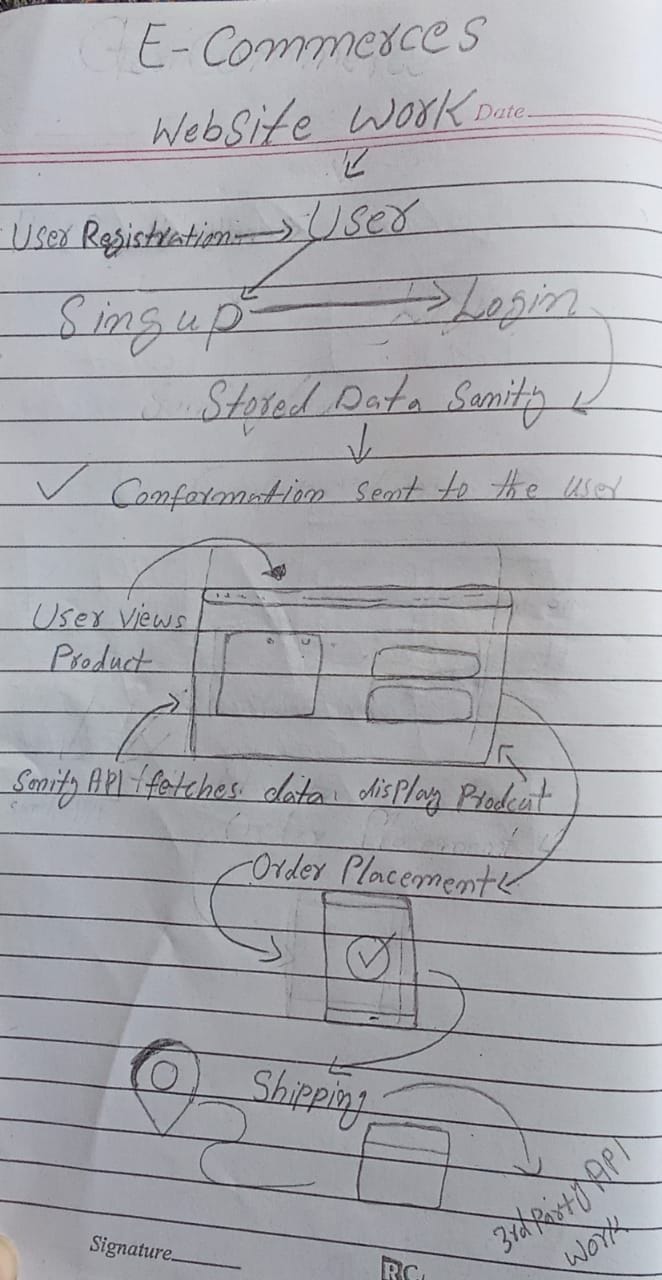 E-Commerces
Website Work
Date
User Registration → User
Singup → Login
Stored Data Sanity
✓ Conformation sent to the user
User Views
Product
Sanity API fetches data display Prodcut
Order Placement
Shipping
3rd Party API
Work
Signature
RC